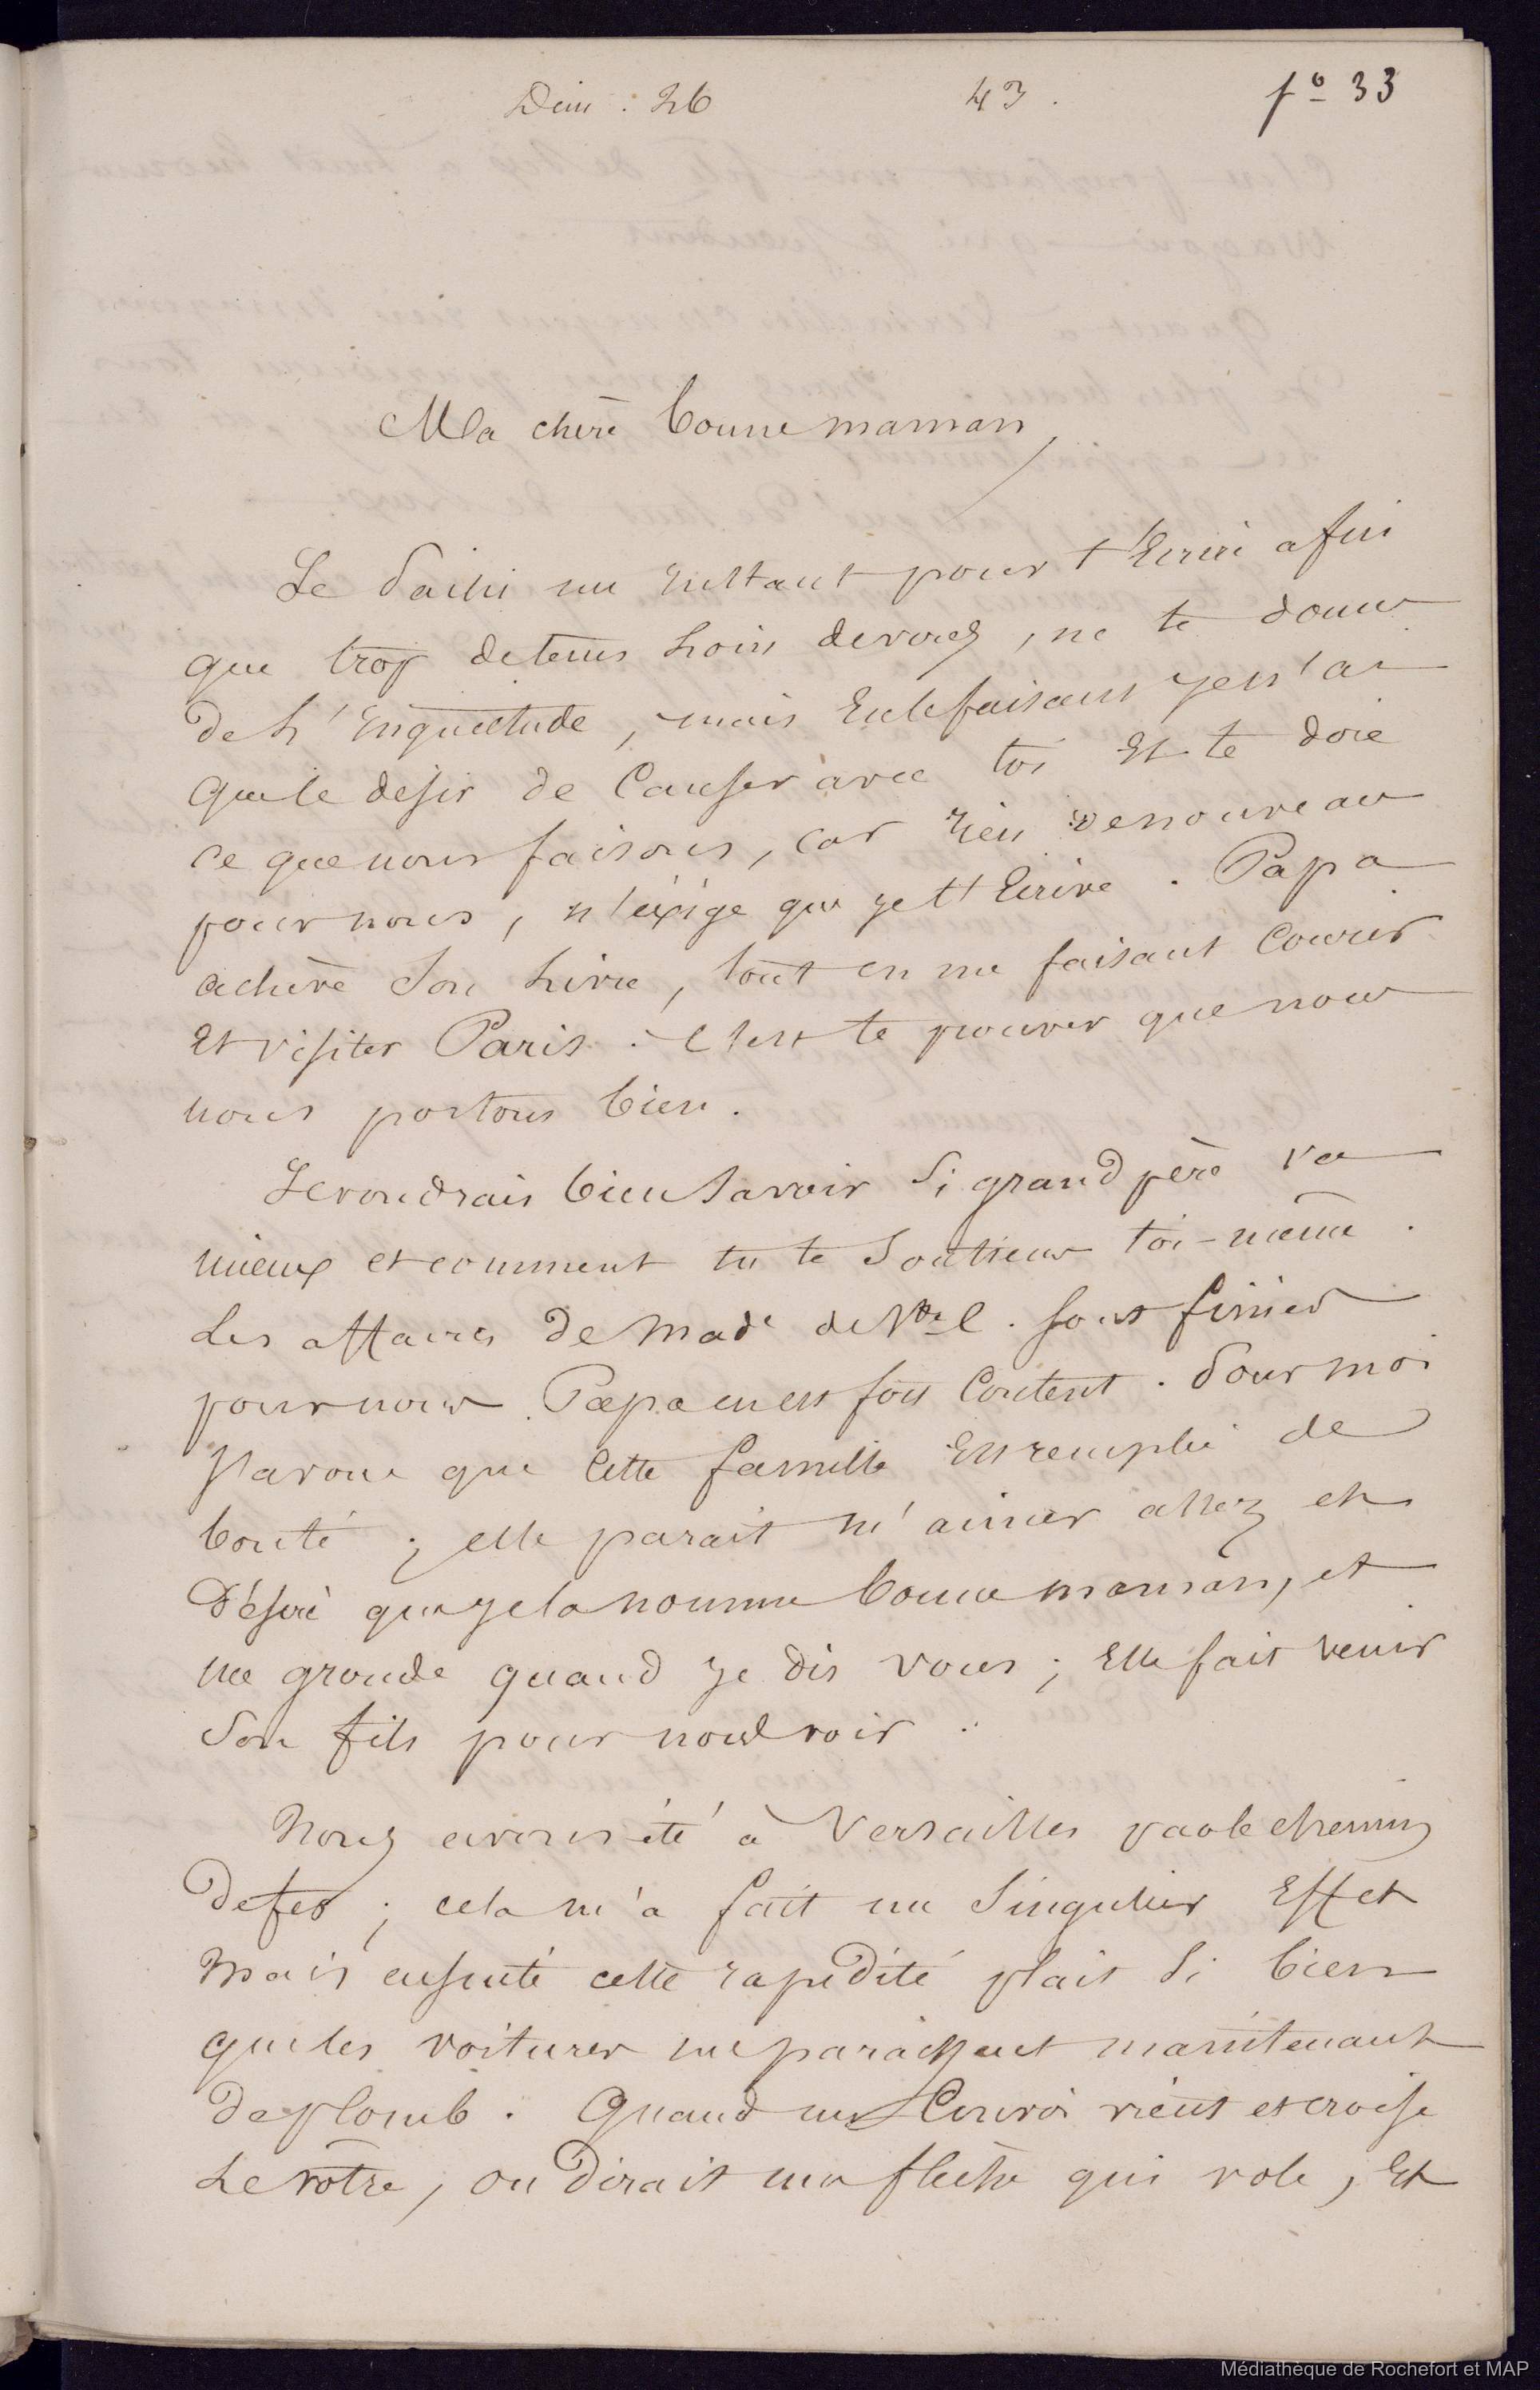 Dim : 26 43. fº 33
Ma chère bonne maman,
Je saisis un instant pour t'Ecrire afin
que trop de tems loin de vous, ne te donne
de l'inquiétude, mais En le faisant je n'ai
que le desir de causer avec toi Et te dire
ce que nous faisons, car rien de nouveau
pour nous, n'éxige que je t'Ecrive. Papa
achève son Livre, tout en me faisant courir
Et visiter Paris. C'est te prouver que nous
nous portons bien.
Je voudrais bien savoir si grand père va
mieux et comment tu te soutiens toi-même.
Les affaires de Made de sont finies
pour nous. Papa en est fort content. Pour moi
j'avoue que cette famille Est remplie de
bonté ; elle parait m'aimer assez et
Désire que je la nomme bonne maman, et
me gronde quand je dis vous ; Elle fait venir
son fils pour nous voir.
Nous avons été à Versailles par le chemin
de fer ; cela m'a fait un singulier Effet
Mais ensuite cette rapidité plait si bien
que les voitures me paraissent maintenant
de plomb. Quand un Convoi vient et croise
Le vôtre, on dirait une flèche qui vole, Et
Médiathèque de Rochefort et MAP